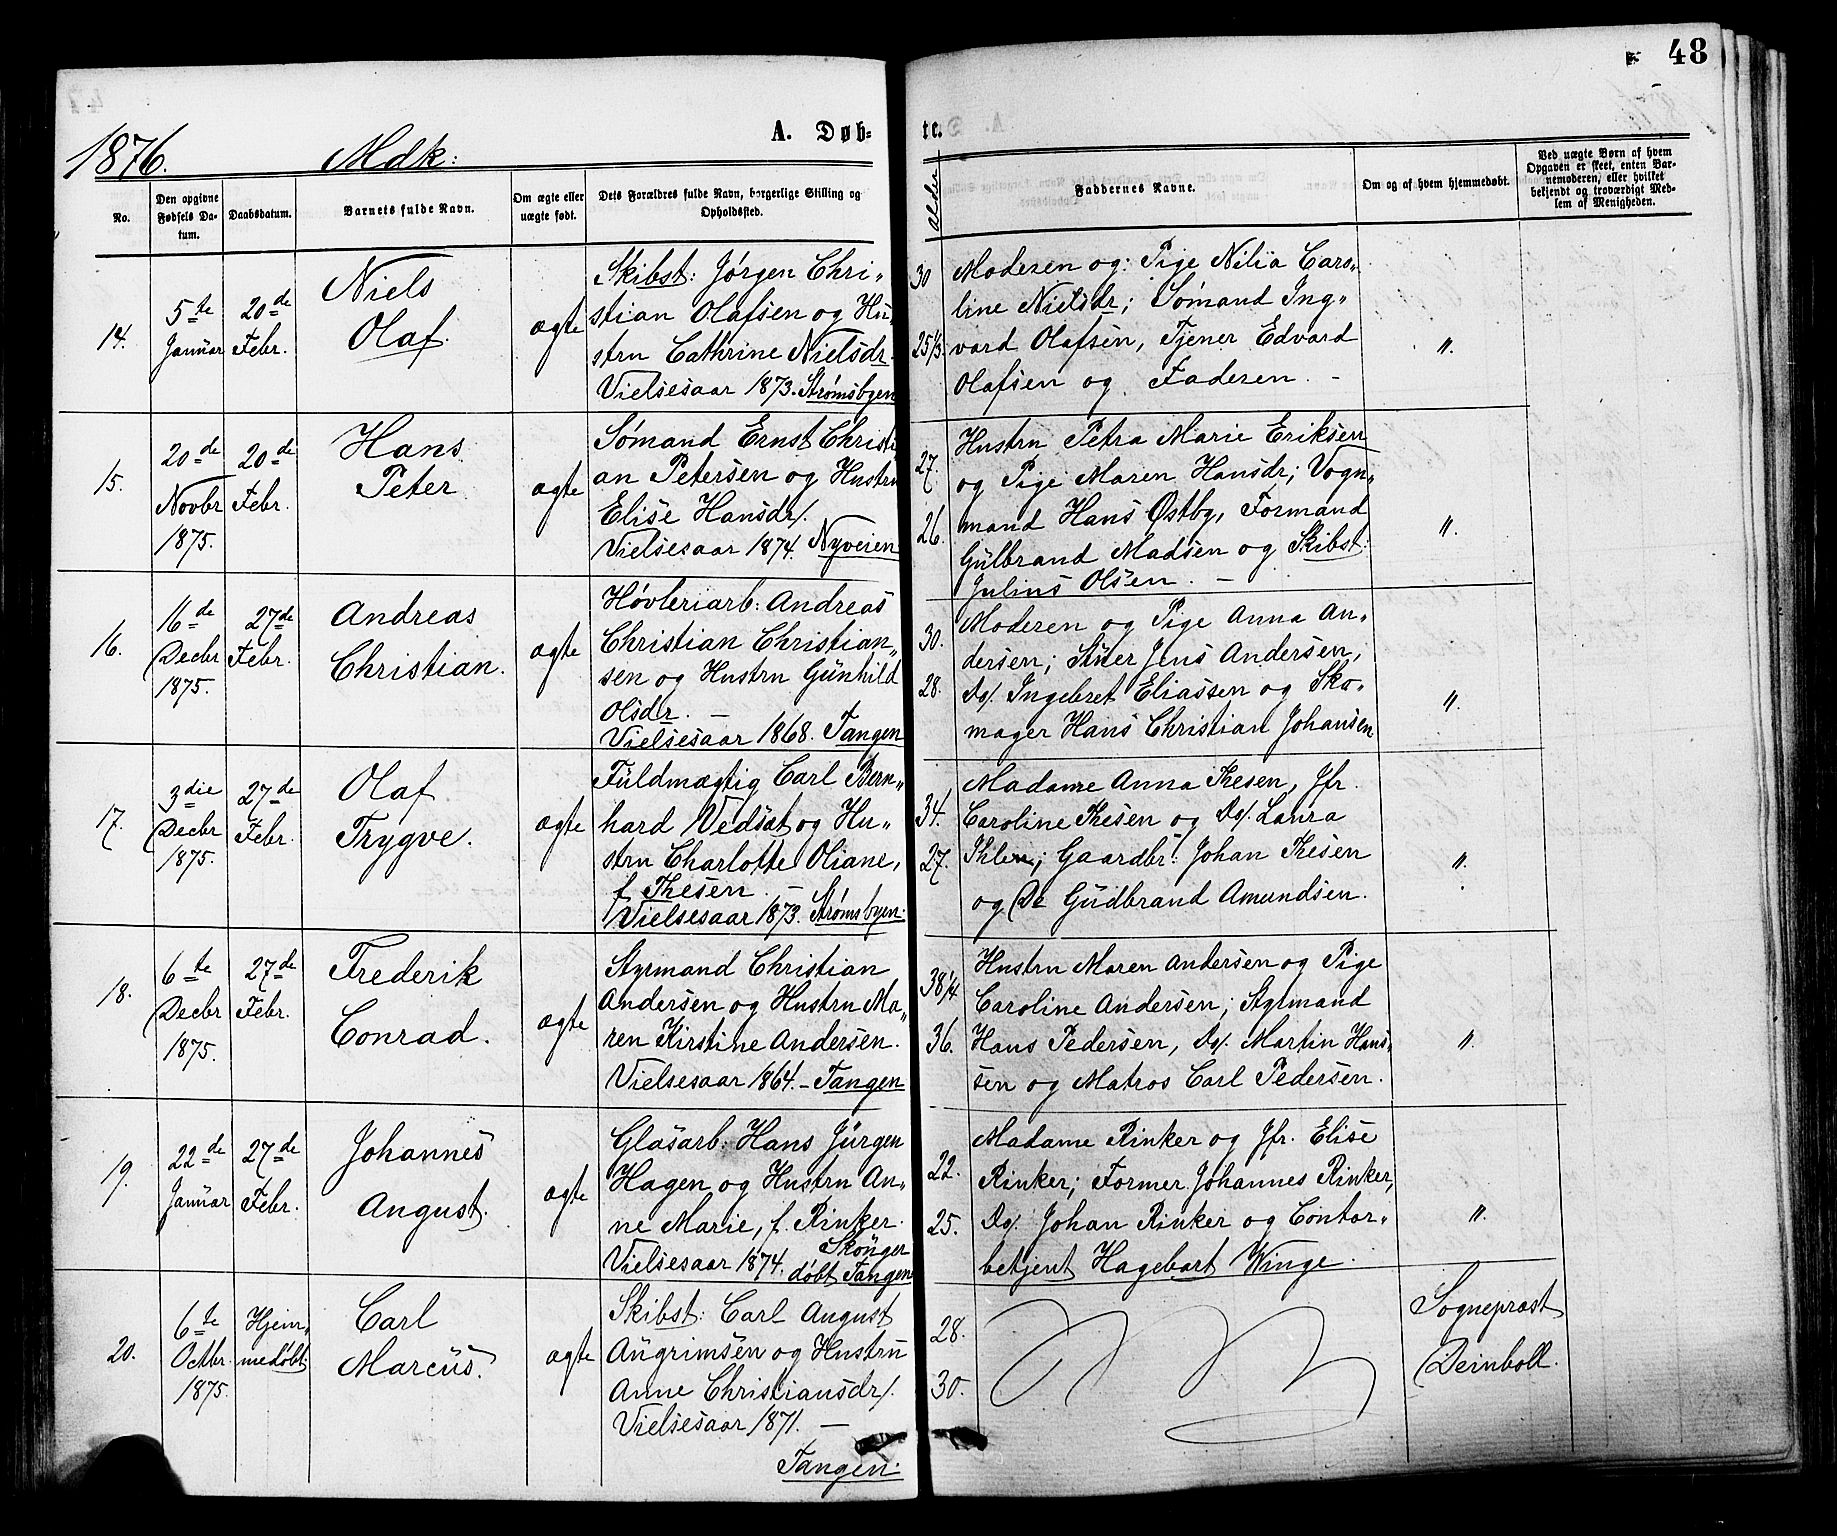 48
1876.
Mdk:
A. Døb-
te.
No.
Den opgivne
Fødsels Da-
tum.
Daabsdatum.
Barnets fulde Navn.
Om ægte eller
uægte født.
Dets Forældres fulde Navn, borgerlige Stilling og
Opholdssted.
Alder
Faddernes Navne.
Om og af hvem hjemmedøbt.
Ved uægte Børn af hvem
Opgaven er skeet, enten Bar-
nemoderen, eller hvilket
bekjendt og troværdigt Med-
lem af Menigheden.
14.
5te
Januar
20de
Febr.
Niels
Olaf.
ægte
Skibst: Jørgen Chri-
stian Olafsen og Hu-
stru Cathrine Nielsdr.
Vielsesaar 1873. Strømsbyen
30
25 1/3.
Moderen og Pige Nilia Caro-
line Nielsdr; Sømand Ing-
vard Olafsen, Tjener Edvard
Olafsen og Faderen. -
".
15.
20de
Novbr
1875.
20de
Febr.
Hans
Peter
ægte
Sømand Ernst Christi
an Petersen og Hustru
Elise Hansdr.
Vielsesaar 1874. Nyveien
27.
26.
Hustru Petra Marie Eriksen
og Pige Maren Hansdr; Vogn-
mand Hans Østby, Formand
Gulbrand Madsen og Skibst:
Julius Olsen. -
".
16.
16de
Decbr
1875.
27de
Febr.
Andreas
Christian.
ægte
Høvleriarb: Andreas
Christian Christian-
sen og Hustru Gunhild
Olsdr. -
Vielsesaar 1868. Tangen
30.
28.
Moderen og Pige Anna An-
dersen; Stuer Jens Andersen,
Do/. Ingebret Eliassen og Sko-
mager Hans Christian Johansen
".
17.
3die
Decbr
1875.
27de
Febr.
Olaf
Trygve.
ægte
Fuldmægtig Carl Bern-
hard Vedsat og Hu-
stru Charlotte Oliane,
f. Thesen. -
Vielsesaar 1873. Strømsbyen.
34.
27.
Madame Anna Thesen, Jfr.
Caroline Thesen og Do/. Laura
Ihlen; Gaardbr: Johan Thesen
og Do Gudbrand Amundsen.
".
18.
6te
Decbr
1875.
27de
Febr.
Frederik
Conrad.
ægte
Styrmand Christian
Andersen og Hustru Ma-
ren Kirstine Andersen.
Vielsesaar 1864. - Tangen
38 1/4
36.
Hustru Maren Andersen og Pige
Caroline Andersen; Styrmand
Hans Pedersen, Do/. Martin Han-
sen og Matros Carl Pedersen.
".
19.
22de
Januar
27de
Febr.
Johannes
August.
ægte
Glasarb: Hans Jürgen
Hagen og Hustru An-
ne Marie, f. Rinker.
Vielsesaar 1874.
døbt Tangen
22.
25.
Madame Rinker og Jfr. Elise
Rinker; Former Johannes Rinker,
Do/. Johan Rinker og Contor-
betjent Hagebart Winge.
".
20.
6te
Octbr.
1875.
Hjem-
medøbt.
Carl
Marcus.
ægte
Skibst: Carl August
Augrimsen og Hustru
Anne Christiansdr.
Vielsesaar 1871. -
Tangen.
28.
30.
Sognepræst
Deinboll.